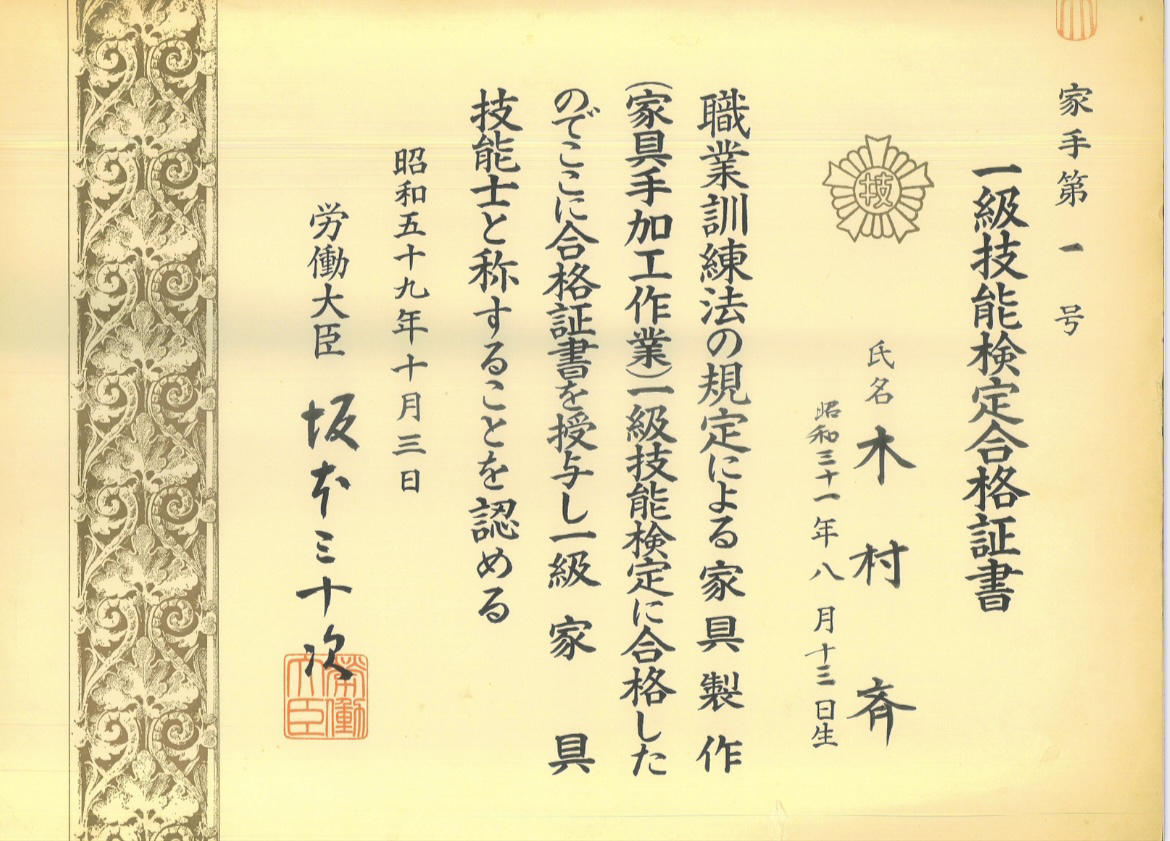 家手第一号
一級技能検定合格証書
技
氏名 木村斉
昭和三十一年八月十三日生
職業訓練法の規定による家具製作
(家具手加工作業)一級技能検定に合格した
のでここに合格証書を授与し一級家具
技能士と称することを認める
昭和五十九年十月三日
労働大臣 坂本三十次
労働大臣